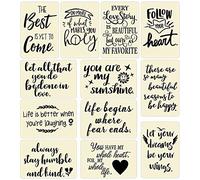 The
Best
IS YET TO
COME.
DO MORE
of what
MAKES YOU
happy
EVERY
Love Story
is BEAUTIFUL
but our is
MY FAVORITE
FOLLOW
your
heart
let all that
you do
be done in
love.
you are
my
sunshine.
there are
so many
beautiful
reasons to
be happy.
Life is better when
you're laughing!
life begins
where
fear ends.
always
stay humble
and kind.
YOU HAVE MY
whole heart,
FOR MY
whole life.
let your
dreams
be your
wings.